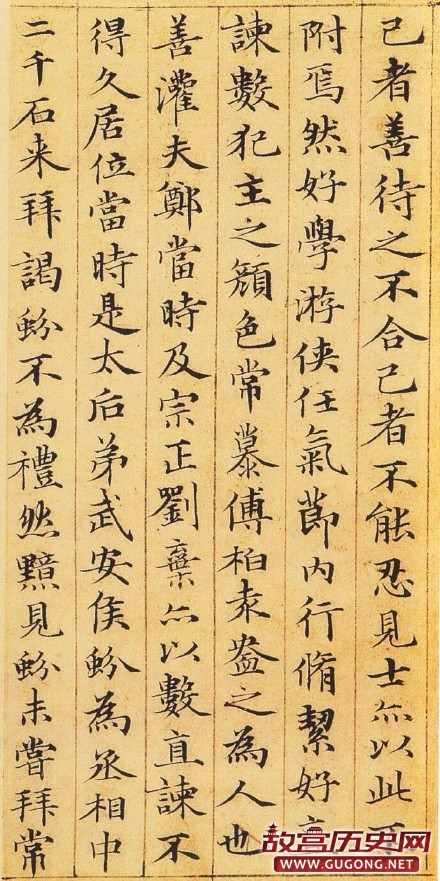 己者善待之不合己者不能忍見士亦以此
附焉然好學游俠任氣節内行脩絜好
諫數犯主之顔色常慕傅柏袁盎之為人也
善灌夫鄭當時及宗正劉棄亦以數直諫不
得久居位當時是太后弟武安侯蚡為丞相中
二千石来拜謁蚡不為禮然黯見蚡未嘗拜常
故宫历史网
WWW.GUGONG.NET